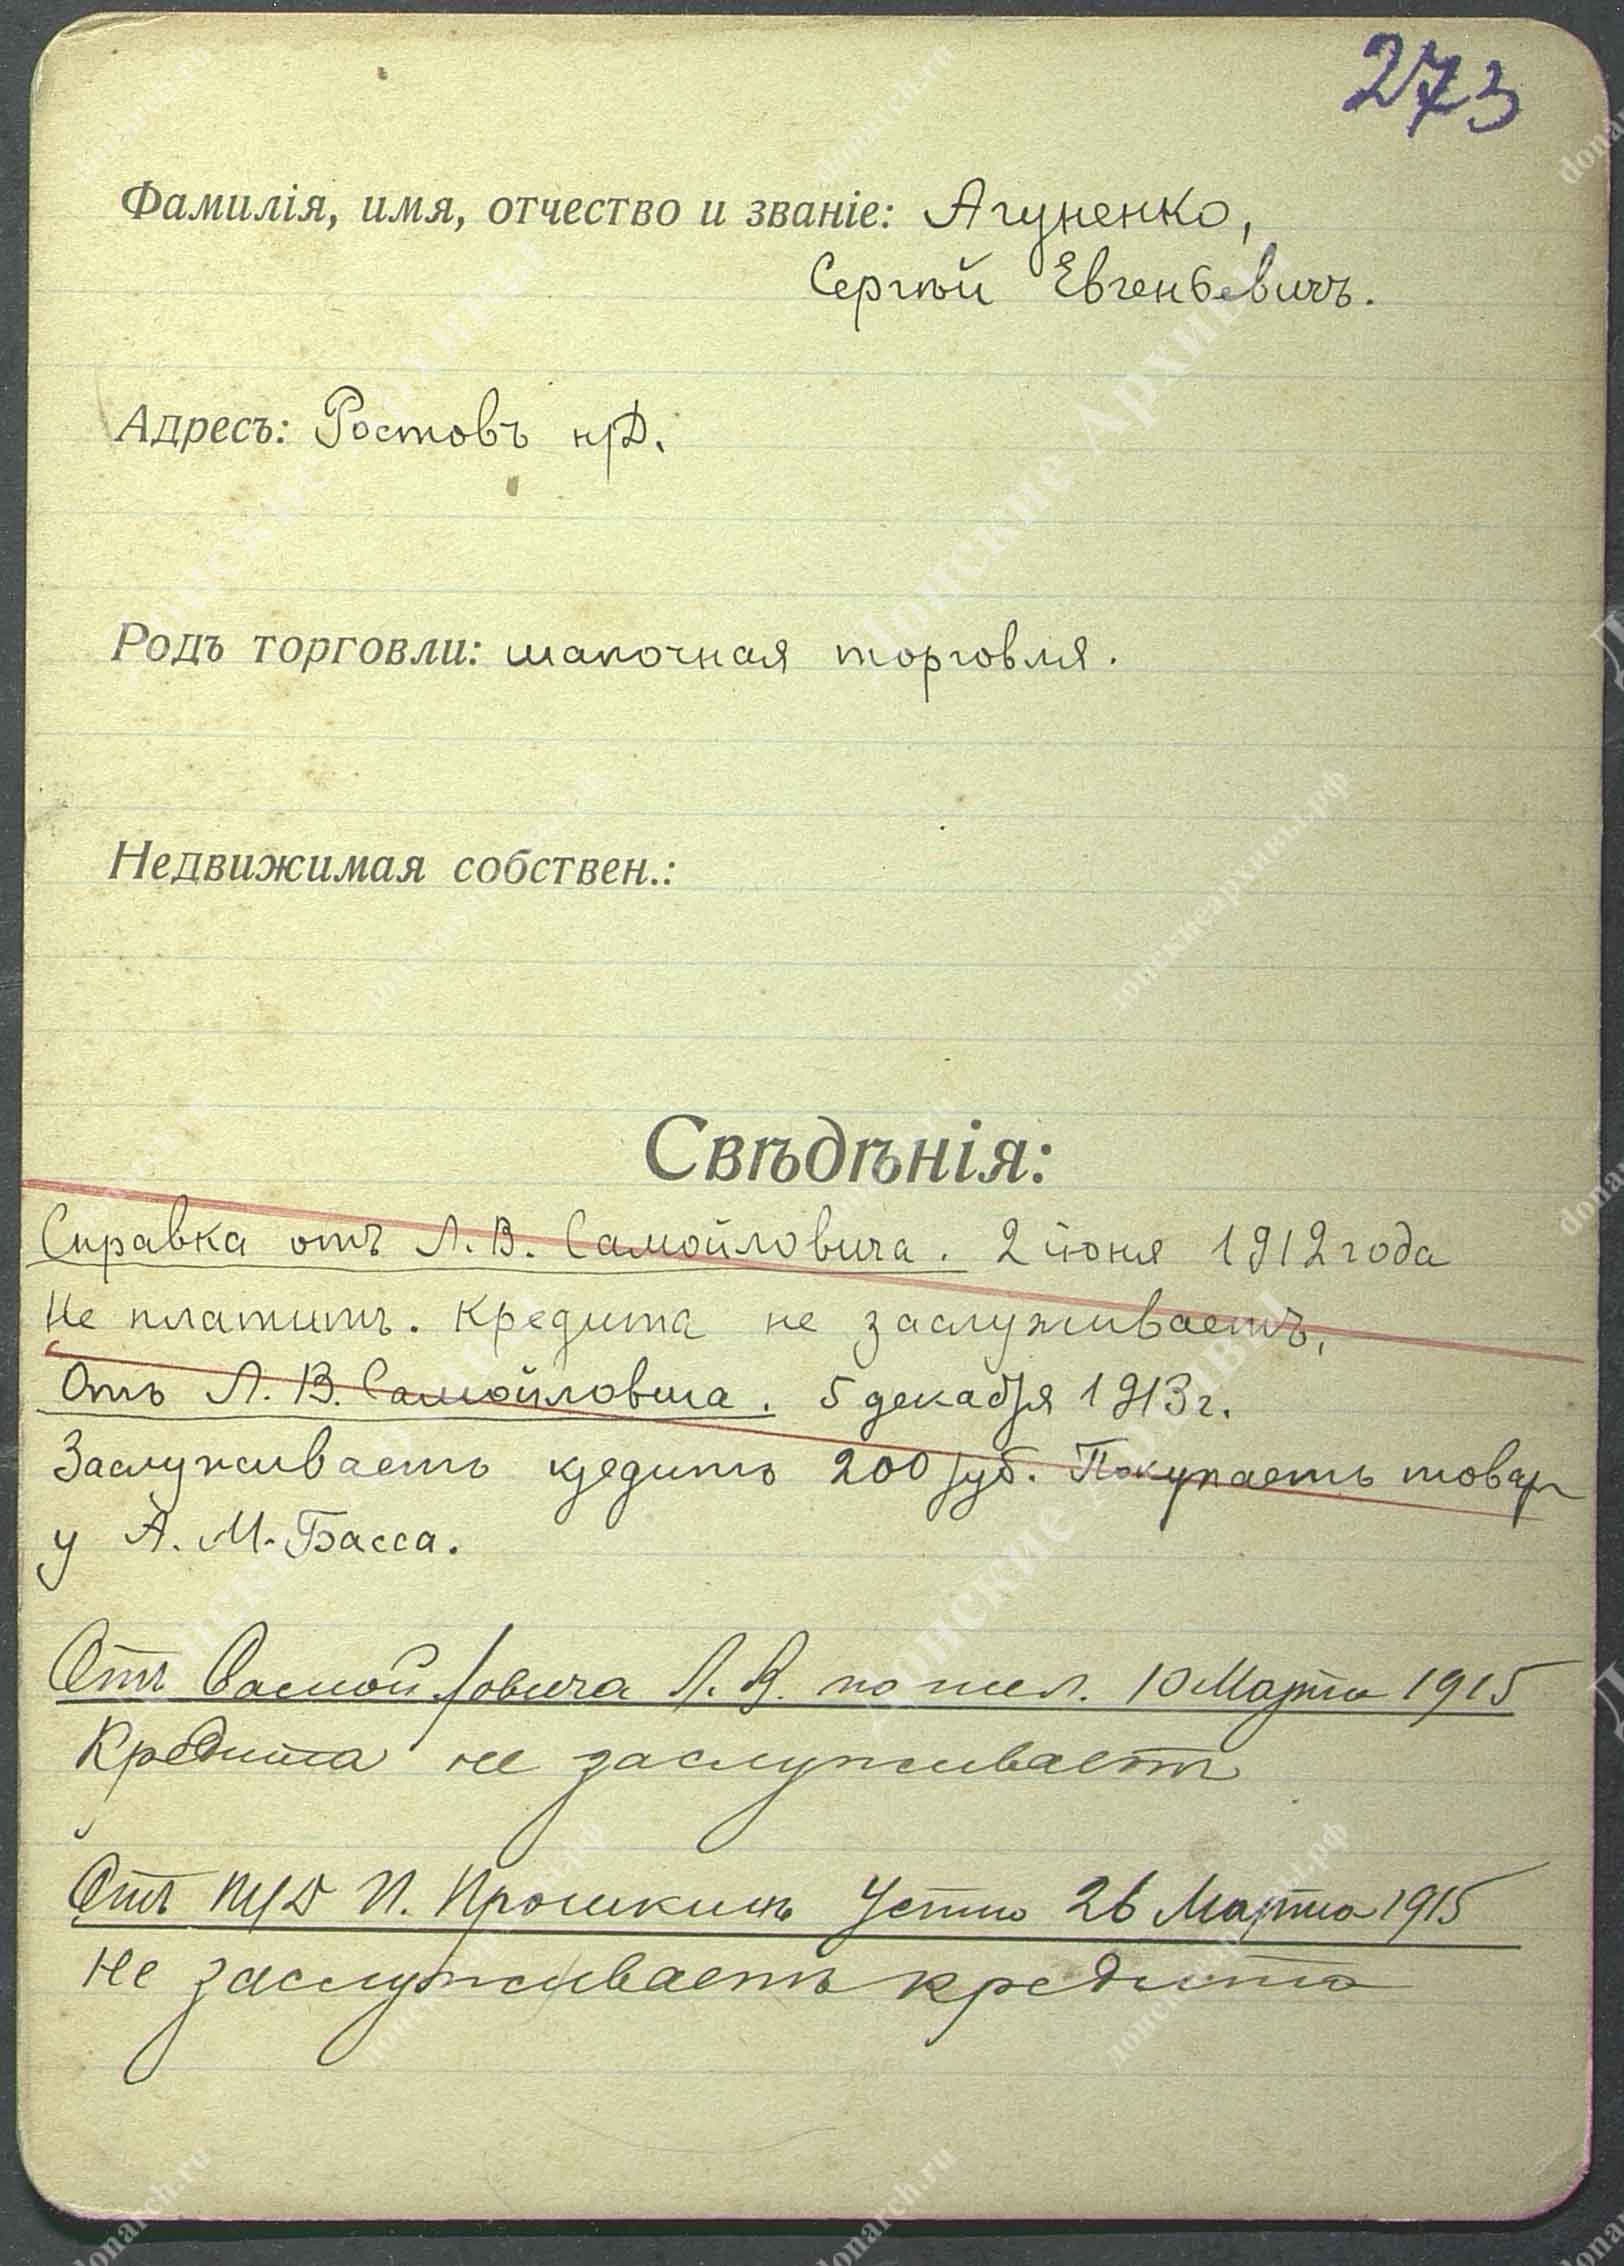 273
Фамилія, имя, отчество и званіе: Агуненко,
Сергѣй Евгеньевичъ.
Адресъ: Ростовъ н/Д.
Родъ торговли: шапочная торговля.
Недвижимая собствен.:
Свѣдѣнія:
Справка отъ Л. В. Самойловича. 2 іюня 1912 года
Не платитъ. Кредита не заслуживаетъ.
Отъ Л. В. Самойловича. 5 декабря 1913 г.
Заслуживаетъ кредитъ 200 руб. Покупаетъ товар
у А. М. Басса.
Отъ Самойловича Л. В. по тел. 10 Марта 1915
Кредита не заслуживаетъ
Отъ Т/Д И. Прошкинъ Устно 26 Марта 1915
Не заслуживаетъ кредита
Донские Архивы
donarch.ru
донскиеархивы.рф